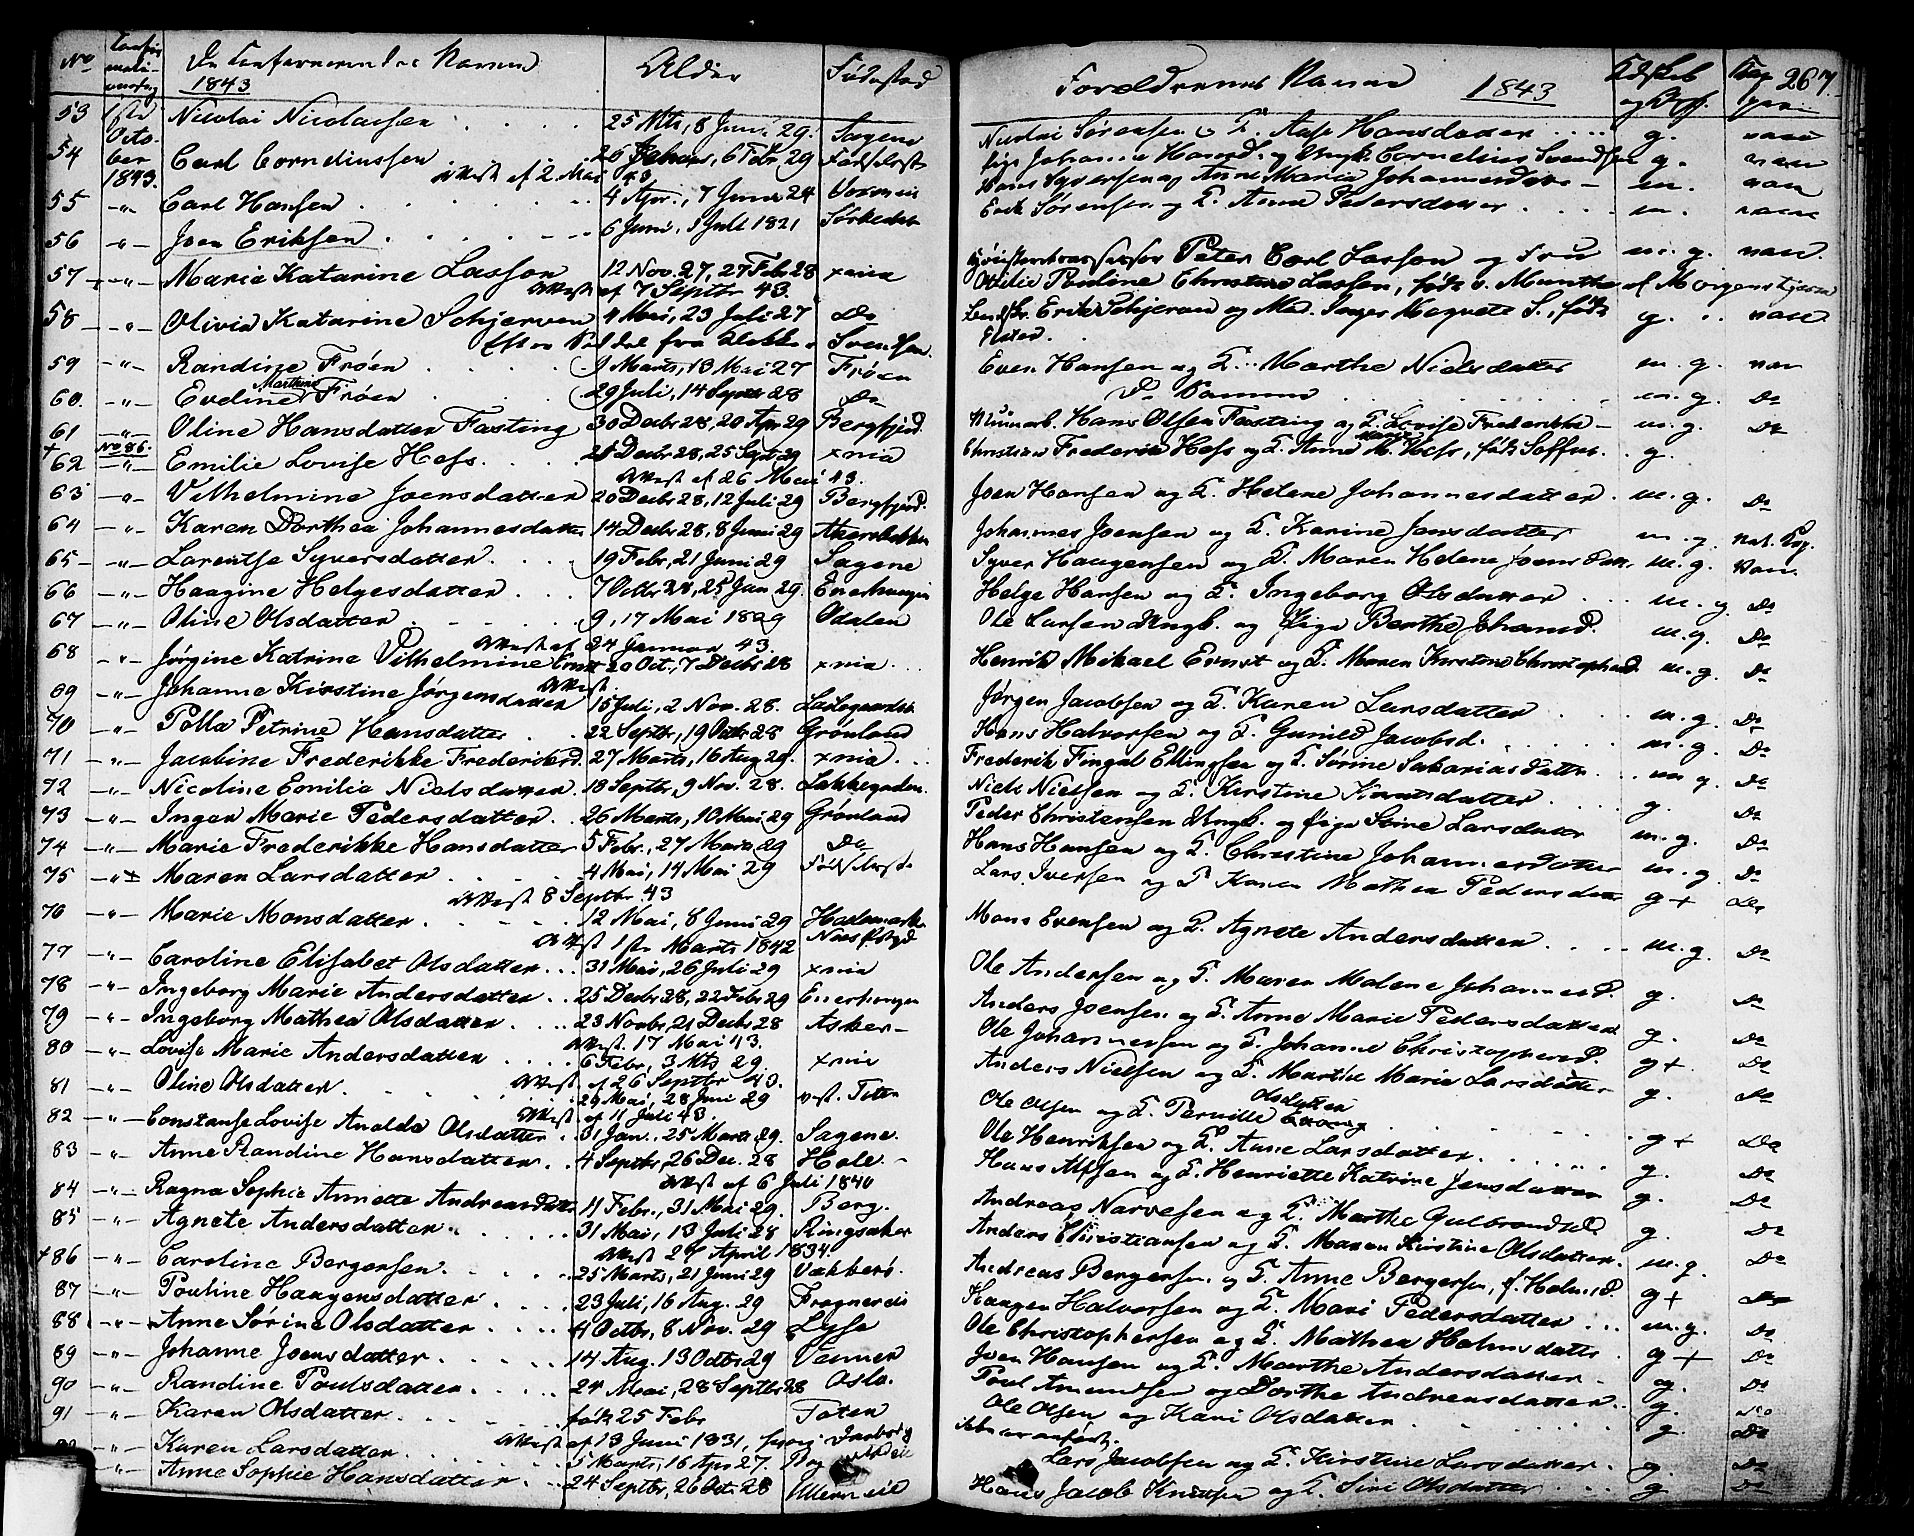 No Confirmationsdag De Confirmerendes Navne Alder Fødested
1843
53 1ste October 1843. Nicolai Nicolaisen 25 Mts, 8 Juni 29. Sagene
54 Carl Corneliussen 6 Febr. 29 Fødselsst.
Attest af 2 Mai 43.
55 -"- Carl Hansen 4 Apr., 7 Juni 24
56 -"- Joen Eriksen 6 Juni, 1 Juli 1821 Sørkedal
57 -"- Maria Katarine Lasson 12 Nov. 27, 27 Febr 28 xnia
Attest af 7 Septbr 43.
58 -"- Olivia Katarine Schjerven 4 Mai, 23 Juli 27 Do
59 -"- Randine Frøen 9 Marts, 13 Mai 27 Frøen
60. -"- Evdine Marthine Frøen 29 Juli, 14 Septbr 28 Do
61 -"- Oline Hansdatter Fasting 30 Decbr 28, 20 Apr 29 Bergfjerd.
+ No 86.
62 -"- Emilie Lovise Hess. Decbr 28, 25 Sept 29 xnia
Attest af 26 Mai 43.
63 -"- Vilhelmine Joensdatter 20 Decbr 28, 12 Juli 29 Bergfjerd.
64 -"- Karen Dorthea Johannesdatter 14 Decbr 28, 8 Juni 29 Akersbakken
65 -"- Larentse Syversdatter 19 Febr, 21 Juni 29 Sagene
66 -"- Haagine Helgesdatter 7 Octbr 28, 25 Jan 29. Enerhaugen
67 -"- Oline Olsdatter 9, 17 Mai 1829 Odalen
Attest af 24 Januar 43.
68 -"- Jørgine Katrine Vilhelmine Ernst 20 Oct., 7 Decbr 28 xnia
Attest.
69 -"- Johanne Kirstine Jørgensdatter 15 Juli, 2 Nov. 28.
70 -"- Polla Petrine Hansdatter 22 Septbr, 19 Octbr 28 Grønland
71 -"- Jacobine Frederikke Frederiksd. 27 Marts, 16 Aug 29. xnia
72 -"- Nicoline Emilie Nielsdatter 18 Septbr, 9 Nov. 28. Lakkegaden.
73 -"- Inger Marie Pedersdatter 26 Marts, 10 Mai 29 Grønland
74 -"- Marie Frederikke Hansdatter 5 Febr., 27 Marts 29 Do
75 -"- Maren Larsdatter 4 Mai, 14 Mai 29
Attest 8 Septbr. 43
76 -"- Marie Monsdatter 12 Mai, 8 Juni 29 Hedemarken
Attest 1ste Marts 1842
77 -"- Caroline Elisabet Olsdatter 31 Mai, 26 Juli 29 xnia
78 -"- Ingeborg Marie Andersdatter 25 Decbr 28, 22 Febr 29 Enerhaugen
79 -"- Ingeborg Mathea Olsdatter 23 Novbr, 21 Decbr 28 Asker
Attest. 17 Mai 43.
80 -"- Lovise Marie Andersdatter 6 Febr, 3 Mts 29 xnia
Attest af 26 Septbr 43.
81 -"- Oline Olsdatter 29 Mai, 28 Juni 29 vest. Toten
Attest af 11 Juli 43.
82 -"- Constanse Lovise Analda Olsdatter 31 Jan. 25 Marts 29. Sagene.
83 -"- Anne Randine Hansdatter 4 Septbr, 26 Dec. 28 Hole
Attest af 6 Juli 1840
84 -"- Ragna Sophie Annette Andreasdatt. 11 Febr., 31 Mai 29. Berg.
85 -"- Agnete Andersdatter 31 Mai, 13 Juli 28 Ringsaker
Attest 29 April 1834.
+86 -"- Caroline Bergersen. 25 Marts, 21 Juni 29 Vækkerø.
87 -"- Pouline Haagensdatter 23 Juli, 16 Aug. 29 Frognerveien
88 -"- Anne Sørine Olsdatter 4 Octbr, 8 Nov. 29 Lysse
89 -"- Johanne Joensdatter 14 Aug. 13 Octbr 29
90 -"- Randine Poulsdatter 24 Mai, 28 Septbr 28 Oslo.
91 -"- Karen Olsdatter født 25 Febr Toten
Attest af 13 Juni 1831,
-"- Karen Larsdatter 5 Marts, 16 Apr 27.
-"- Anne Sophie Hansdatter 24 Septbr, 26 Octbr 28
Forældrenes Navne 1843 267.
Nicolai Sørensen og K. Aase Hansdatter g. nat.
Pige Johanne Hansd. og Ungk. Cornelius Svendsen g.
Hans Syversen og Anne Maria Johannesdatter m.
Erik Sørensen og K. Anne Pedersdatter m.
Peter Carl Lasson og Fru m. g.
Otilie Pauline Christine Lasson, født v. Munthe af Morgenstjerne
Erik Schjerven og Mad. Inger Margrete S., født g.
Even Hansen og K. Marthe Nielsdatter m. g.
De Samme m. g. Do
Hans Olsen Fasting og K. Lovise Frederikke m. g. Do
Christian Frederik Hess og K. Anne M. Hess, født g.
Joen Hansen og K. Helene Johannesdatter m. g. Do
Johannes Joensen og K. Karine Jensdatter m. g.
Syver Haagensen og K. Maren Helene Joensdatt. m. g.
Helge Hansen og K. Ingeborg Olsdatter m. g. Do
Ole Larsen Ungk. og Pige Berthe Johansd. m. g. Do
Henrik Mikael Ernst og K. Maren Kirstine Christophersd. m. g. Do
Jørgen Jacobsen og K. Karen Larsdatter m. g. Do
Hans Halvorsen og K. Gunild Jacobsd. m. g. Do
Frederik Fingal Ellingsen og K. Sørine Sakariasdattr. m. g. Do
Niels Nielsen og K. Kirstine Knutsdatter g. Do
Peder Christensen Ungk. og Pige Sørine Larsdatter m. g. Do
Hans Hansen og K. Christine Johannesdatter m. g. Do
Lars Iversen og K. Karen Mathea Pedersdatter g+ Do
Mons Evensen og K. Agnete Andersdatter m. g. Do
Ole Andersen og K. Maren Malene Johannesd. g. Do
Anders Joensen og K. Anne Marie Pedersdatter g. Do
Ole Johannessen og K. Johanne Christophersd. g+. Do
Anders Nielsen og K. Marthe Marie Larsdatter g. Do
Ole Olsen og K. Pernille Olsdatter g+ Do
Ole Henriksen og K. Anne Larsdatter g. Do
Hans Alfsen og K. Henriette Katrine Jensdatter g. Do
Andreas Narvesen og K. Marthe Gulbrandsd. g. Do
Anders Christiansen og K. Maren Kirstine Olsdatter. m. g. Do
Andreas Bergersen og K. Anne Bergersen, f. Holmsd. g+ Do
Haagen Halvorsen og K. Mari Pedersdatter m. g. Do
Ole Christophersen og K. Mathea Holmsdattr. g+ Do
Joen Hansen og K. Marthe Andersdatter g. Do
Poul Amundsen og Dorthe Andreasdatter g. Do
Ole Olsen og Kari Olsdatter g. Do
ikke anført.
Lars Jacobsen og K. Kirstine Larsdatter g. Do
Hans Jacob Knutsen og K. Siri Olsdatter g Do